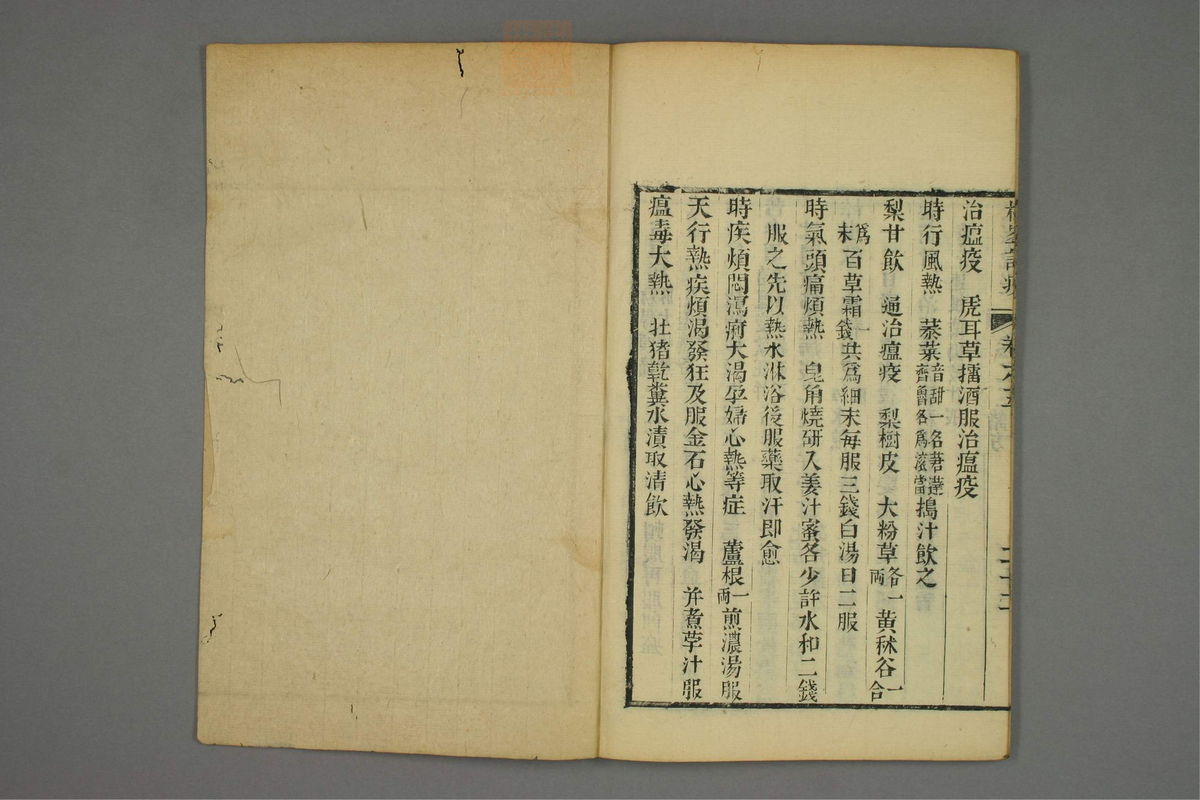 治瘟疫　虎耳草擂酒服治瘟疫
時行風熱　菾菜音甜一名莙薘齊魯各爲滾當搗汁飲之
梨甘飲　通治瘟疫　梨樹皮　大粉草各一兩　黃秫谷一合
爲末百草霜一錢共爲細末每服三錢白湯日二服
時氣頭痛煩熱　皂角燒研入姜汁蜜各少許水和二錢
服之先以熱水淋浴後服藥取汗即愈
時疾煩悶瀉痢大渴孕婦心熱等症　蘆根一兩煎濃湯服
天行熱疾煩渴發狂及服金石心熱發渴　并煮葶汁服
瘟毒大熱　壯猪乾糞水漬取清飲